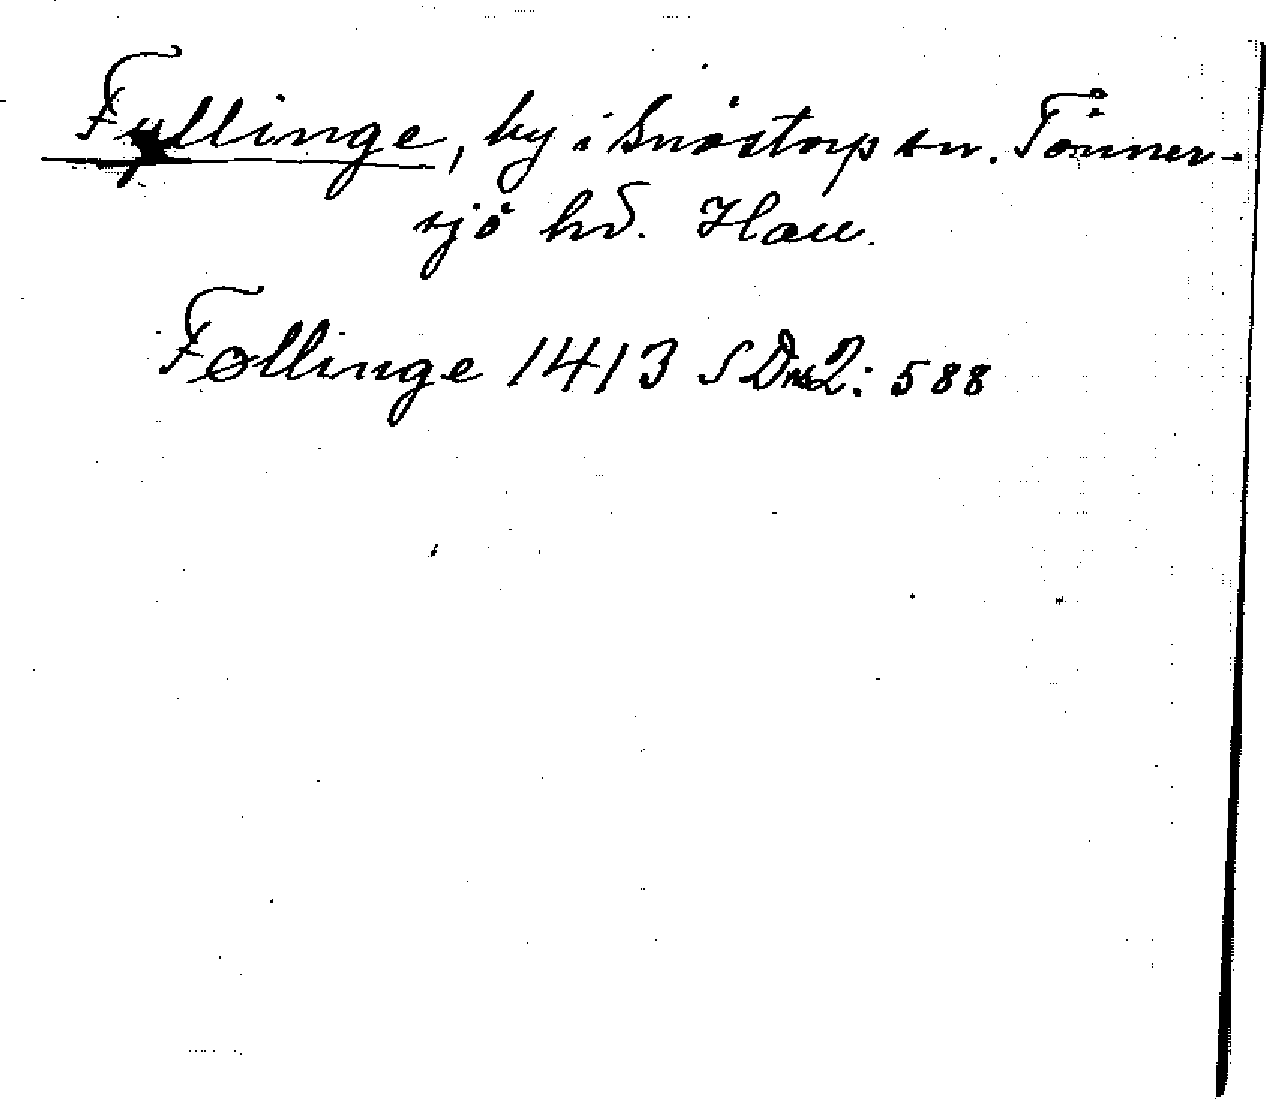 Fyllinge, by i Snöstorp sn. Tönner-
sjö hd. Hall.
Føllinge 1413 SDns2: 588